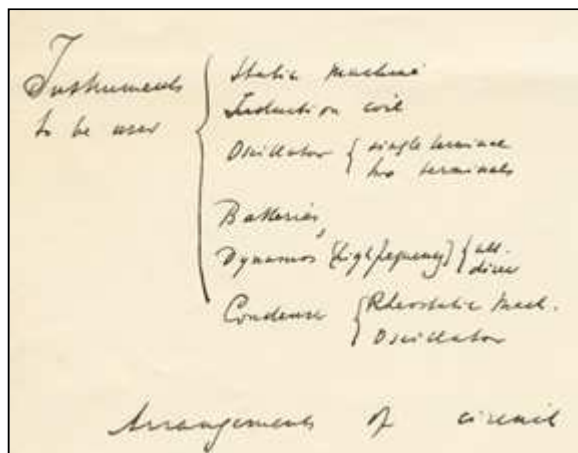 Instruments
to be used
Static machine
Induction coil
Oscillator { single terminal
two terminals
Batteries,
Dynamos (high frequency) { alt.
direc
Condenser { Rheostatic Mach.
Oscillator
Arrangements of circuit